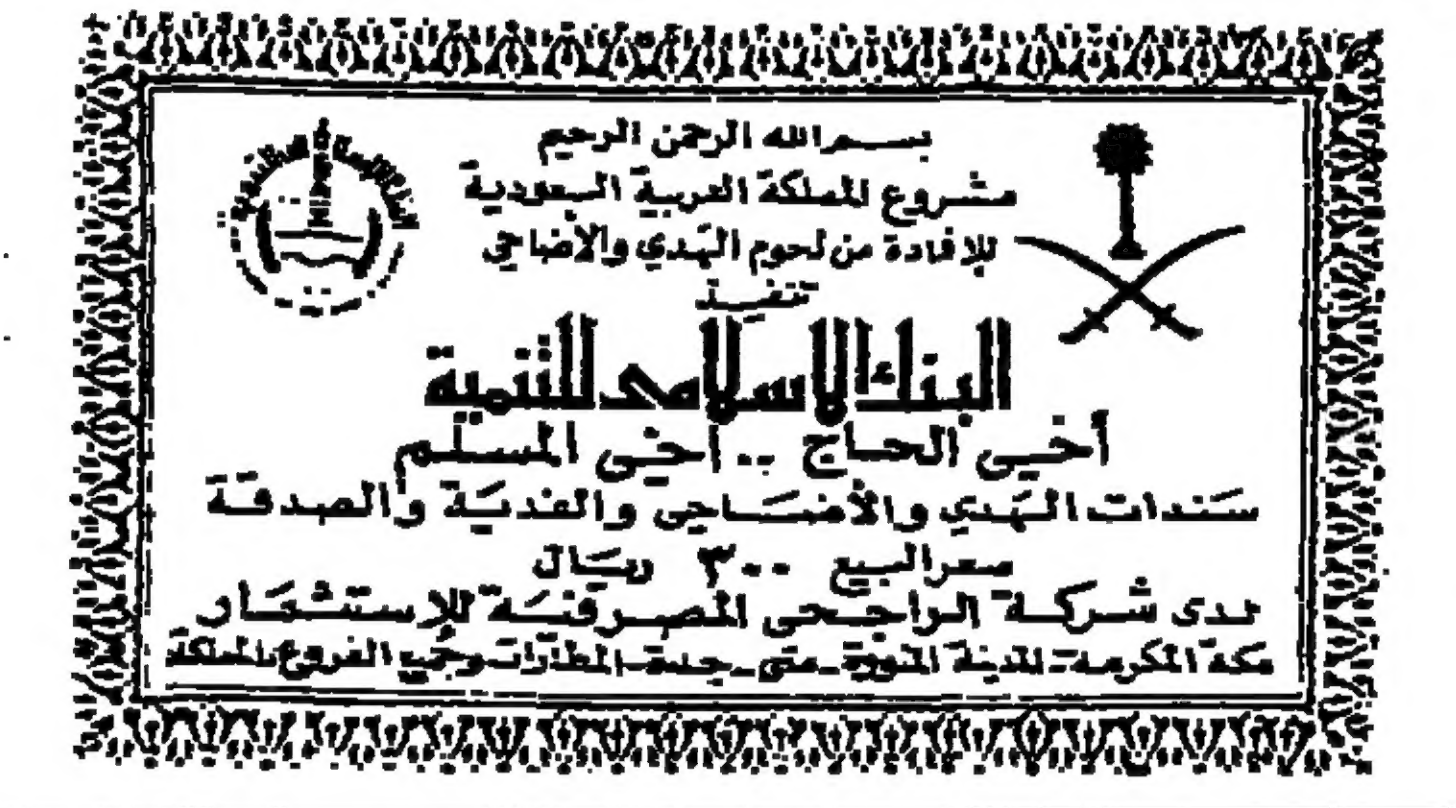 بسم الله الرحمن الرحيم
مشروع المملكة العربية السعودية
للإفادة من لحوم الهَدي والأضاحي
تنفيذ
البنك الإسلامي للتنمية
أخي الحاج .. أخي المسلم
سَندات الهَدي والأضَاحي والفديَة والصدقة
سعر البيع ٣٠٠ ريَال
لدى شركة الراجحي المصرفيَة للإستثمَار
مكة المكرمة - المدينة المنورة - منى - جدة - المطارات وجميع الفروع بالمملكة